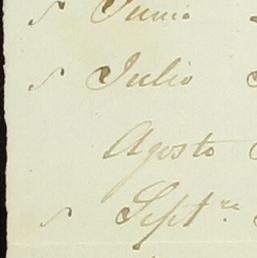 Junio
Julio
Agosto
Septre